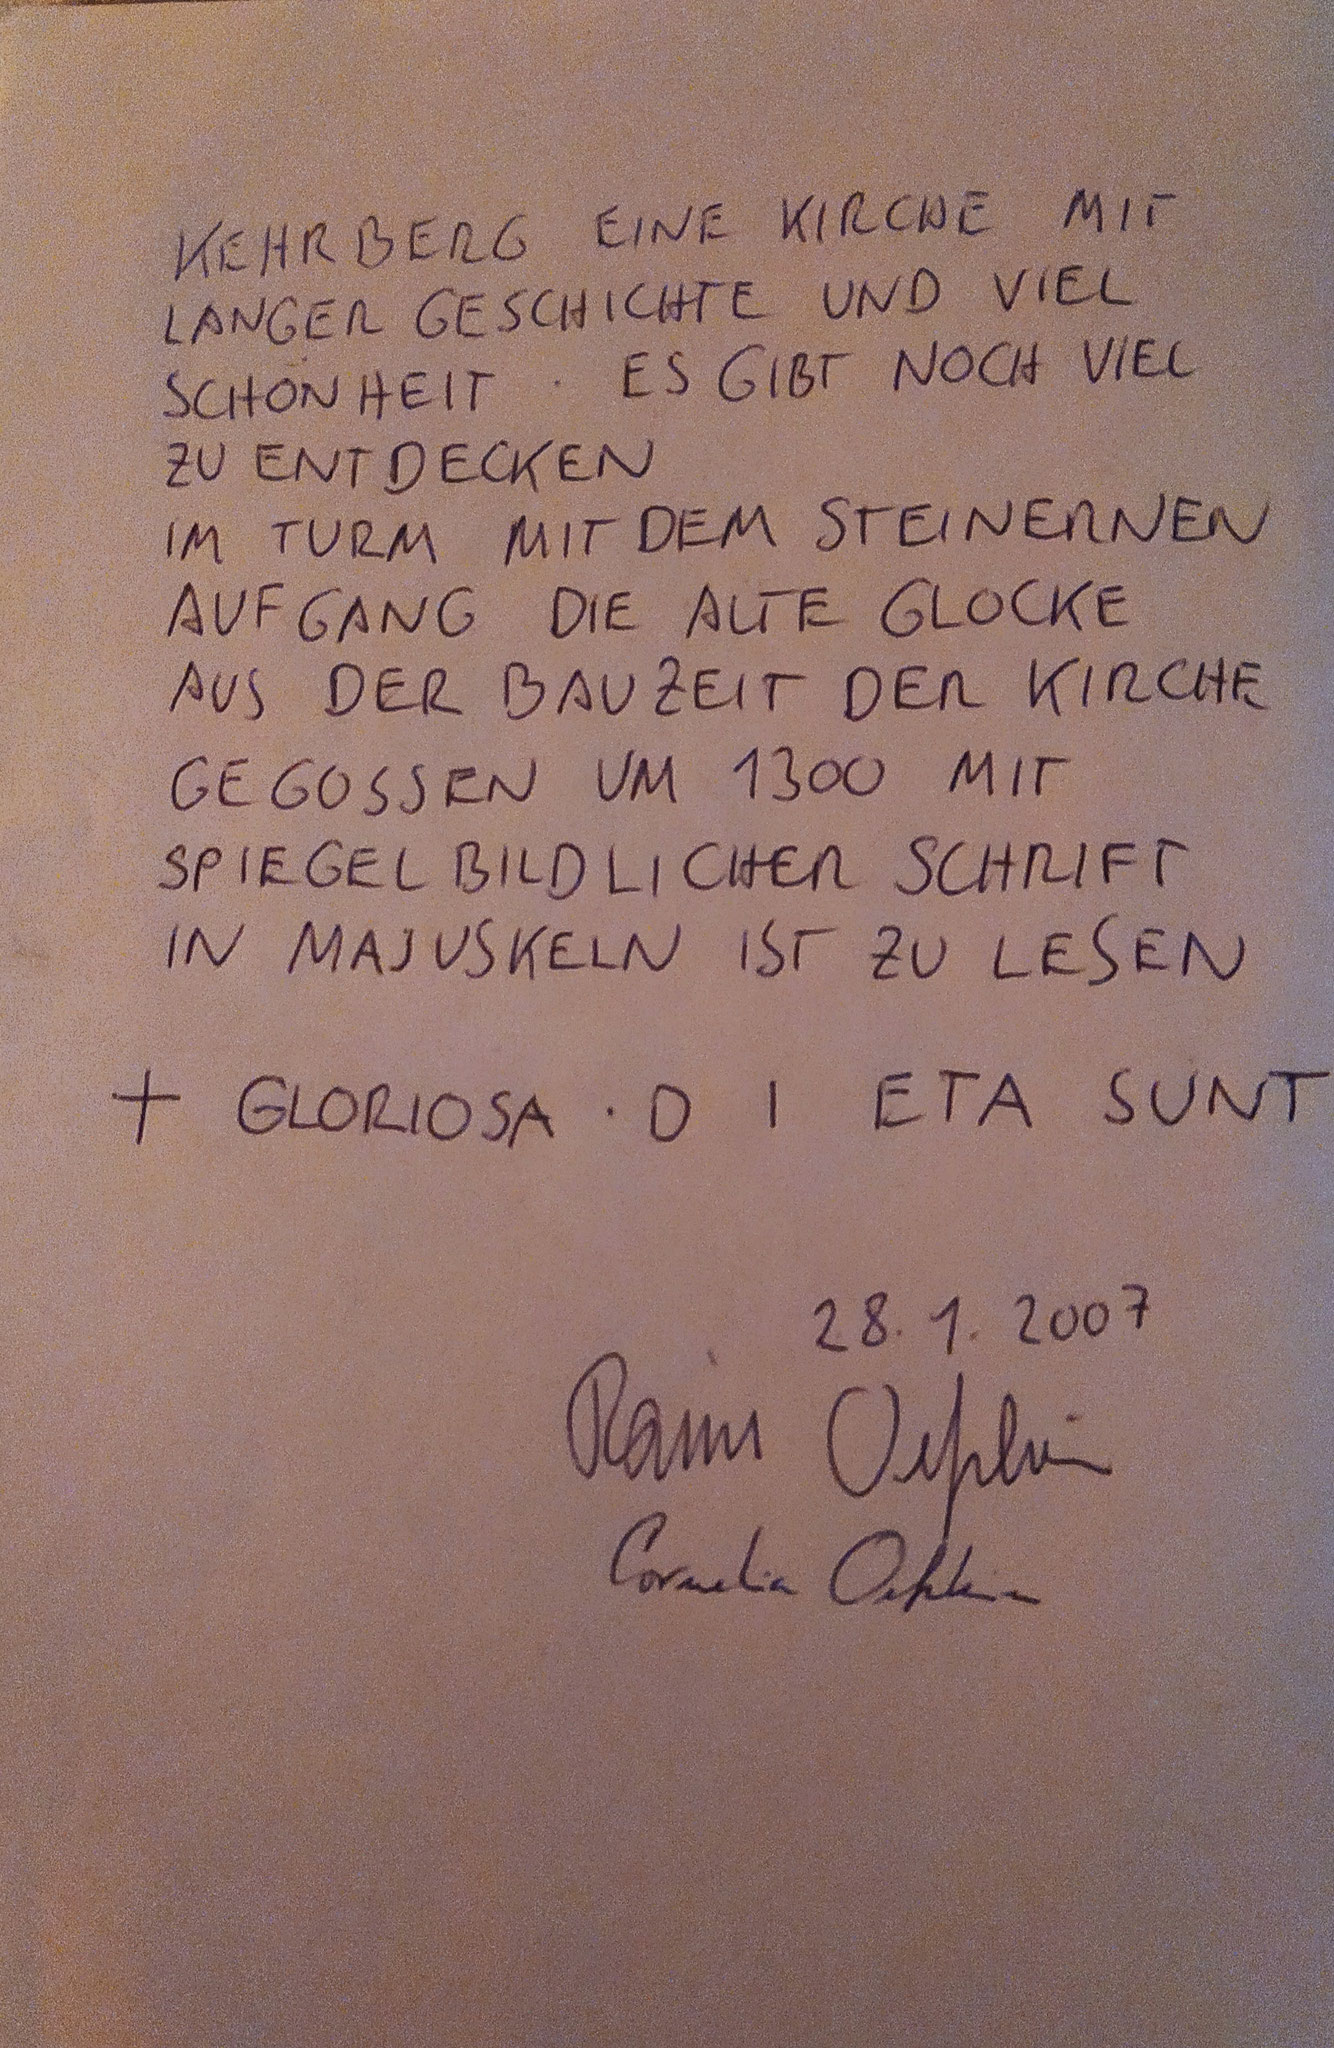 KEHRBERG EINE KIRCHE MIT
LANGER GESCHICHTE UND VIEL
SCHÖNHEIT . ES GIBT NOCH VIEL
ZU ENTDECKEN
IM TURM MIT DEM STEINERNEN
AUFGANG DIE ALTE GLOCKE
AUS DER BAUZEIT DER KIRCHE
GEGOSSEN UM 1300 MIT
SPIEGELBILDLICHER SCHRIFT
IN MAJUSKELN IST ZU LESEN
+ GLORIOSA · D I ETA SUNT
28.1.2007
Rainer
Cornelia